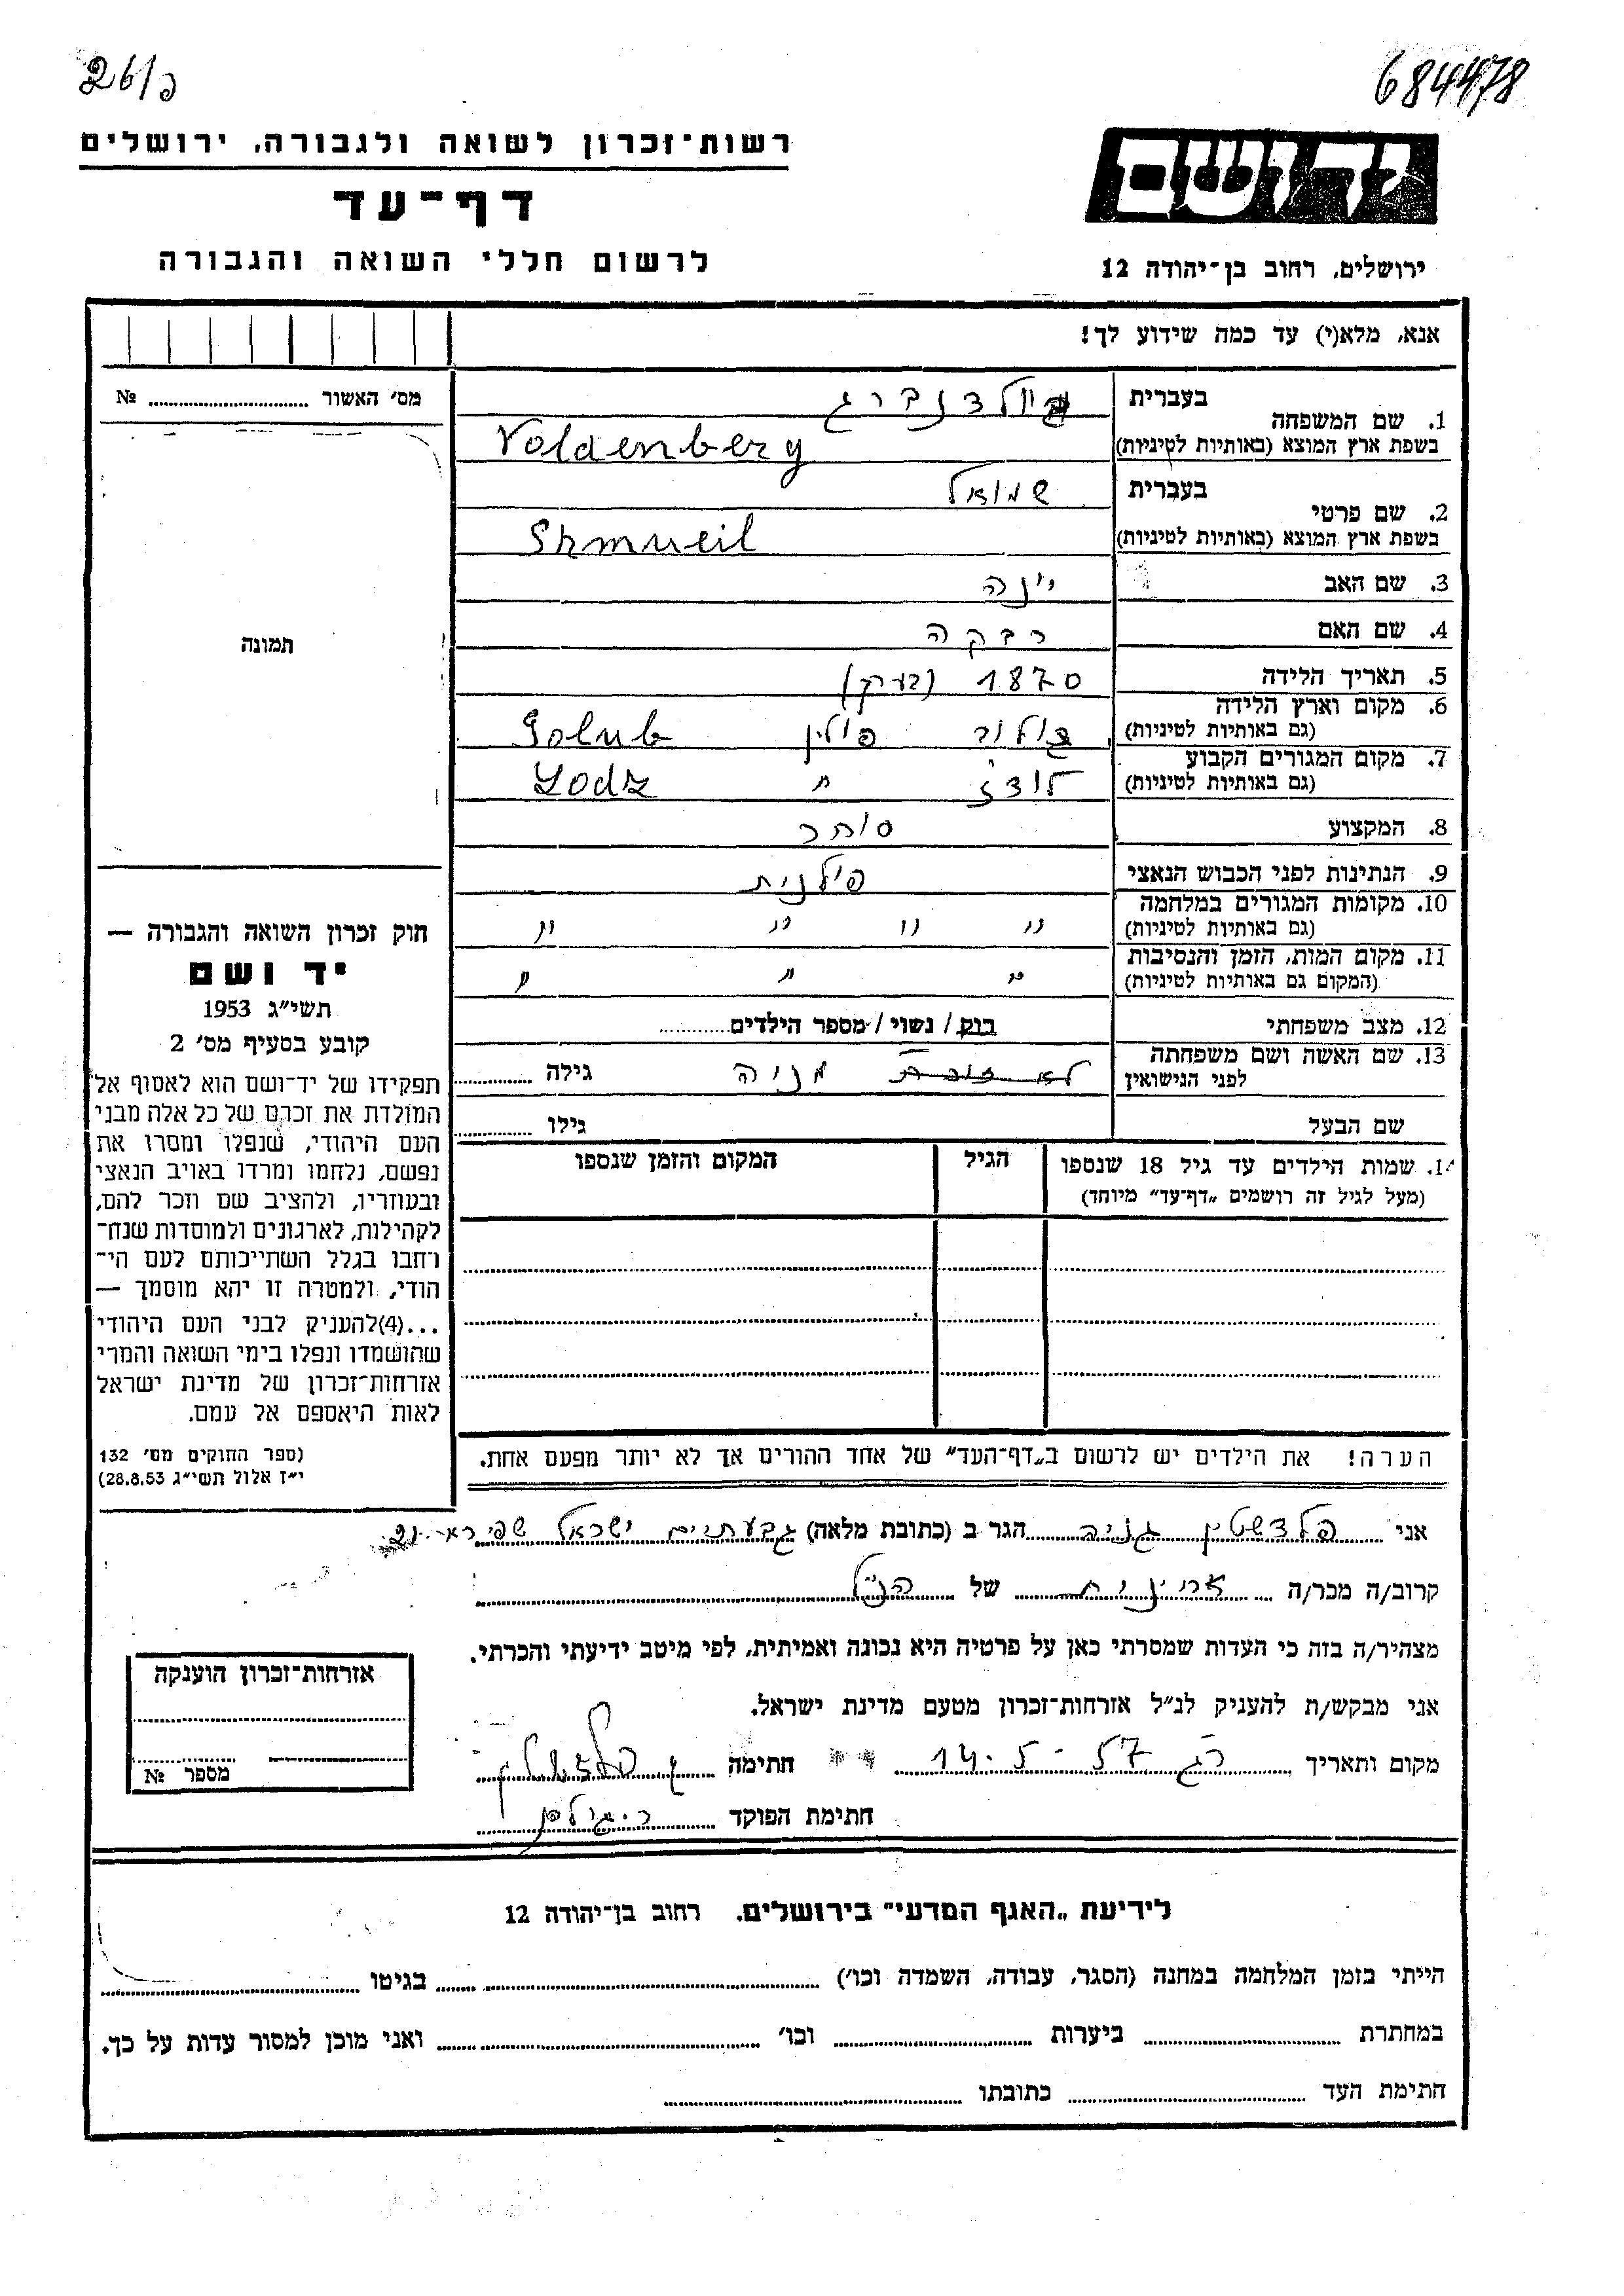 26/כ
684478
רשות־זכרון לשואה ולגבורה, ירושלים
יד ושם
דף־עד
לרשום חללי השואה והגבורה
ירושלים, רחוב בן־יהודה 12
אנא, מלא(י) עד כמה שידוע לך!
מס׳ האשור № 
1. שם המשפחה
בעברית וולדנברג
בשפת ארץ המוצא (באותיות לטיניות) Voldenberg
2. שם פרטי
בעברית שמואל
בשפת ארץ המוצא (באותיות לטיניות) Shmueil
3. שם האב יונה
4. שם האם רבקה
5. תאריך הלידה 1870 (בערך)
6. מקום וארץ הלידה (גם באותיות לטיניות) גולוב פולין Golub
7. מקום המגורים הקבוע (גם באותיות לטיניות) לודז׳ " Lodz
8. המקצוע סוחר
9. הנתינות לפני הכבוש הנאצי פולנית
10. מקומות המגורים במלחמה (גם באותיות לטיניות) " " " "
11. מקום המות, הזמן והנסיבות (המקום גם באותיות לטיניות) " " "
12. מצב משפחתי רוק / נשוי / מספר הילדים
13. שם האשה ושם משפחתה לפני הנישואין לא זוכרת מניה גילה
שם הבעל גילו
14. שמות הילדים עד גיל 18 שנספו (מעל לגיל זה רושמים „דף־עד״ מיוחד)
הגיל
המקום והזמן שנספו
הערה! את הילדים יש לרשום ב„דף־העד״ של אחד ההורים אך לא יותר מפעם אחת.
תמונה
חוק זכרון השואה והגבורה —
יד ושם
תשי״ג 1953
קובע בסעיף מס׳ 2
תפקידו של יד־ושם הוא לאסוף אל
המולדת את זכרם של כל אלה מבני
העם היהודי, שנפלו ומסרו את
נפשם, נלחמו ומרדו באויב הנאצי
ובעוזריו, ולהציב שם וזכר להם,
לקהילות, לארגונים ולמוסדות שנח־
רחבו בגלל השתייכותם לעם הי־
הודי, ולמטרה זו יהא מוסמך —
...(4)להעניק לבני העם היהודי
שהושמדו ונפלו בימי השואה והמרי
אזרחות־זכרון של מדינת ישראל
לאות היאספם אל עמם.
(ספר החוקים מס׳ 132
י״ז אלול תשי״ג 28.8.53)
אני פלדשטין גניה הגר ב (כתובת מלאה) גבעתיים ישראל שפירא 21
קרוב/ה מכר/ה של הנ״ל
מצהיר/ה בזה כי העדות שמסרתי כאן על פרטיה היא נכונה ואמיתית, לפי מיטב ידיעתי והכרתי.
אני מבקש/ת להעניק לנ״ל אזרחות־זכרון מטעם מדינת ישראל.
מקום ותאריך רג 14.5.57 חתימה ג פלדשטין
חתימת הפוקד
אזרחות־זכרון הוענקה
מספר №
לידיעת „האגף המדעי״ בירושלים, רחוב בן־יהודה 12
הייתי בזמן המלחמה במחנה (הסגר, עבודה, השמדה וכו׳) בגיטו
במחתרת ביערות וכו׳ ואני מוכן למסור עדות על כך.
חתימת העד כתובתו